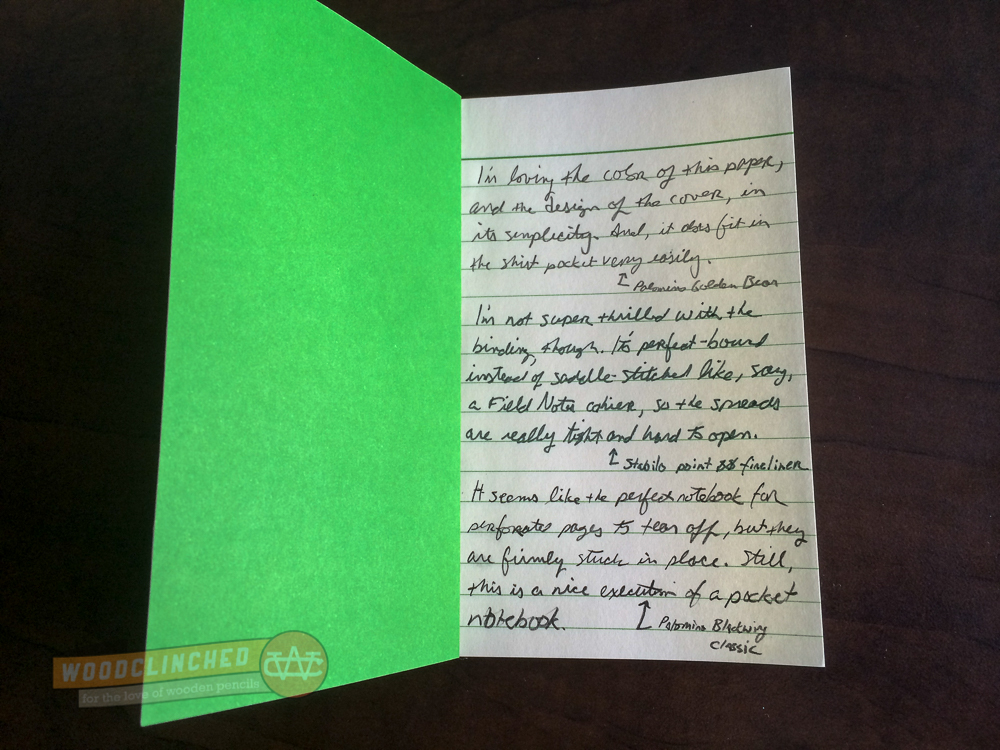 I'm loving the color of this paper,
and the design of the cover, in
its simplicity. And, it does fit in
the shirt pocket very easily.
↑ Palomino Golden Bear
I'm not super thrilled with the
binding, though. It's perfect-bound
instead of saddle-stitched like, say,
a Field Notes cahier, so the spreads
are really tight and hard to open.
↑ Stabilo point 88 fineliner
It seems like the perfect notebook for
perforated pages to tear off, but they
are firmly stuck in place. Still,
this is a nice execution of a pocket
notebook.
↑ Palomino Blackwing
Classic
WOODCLINCHED
for the love of wooden pencils